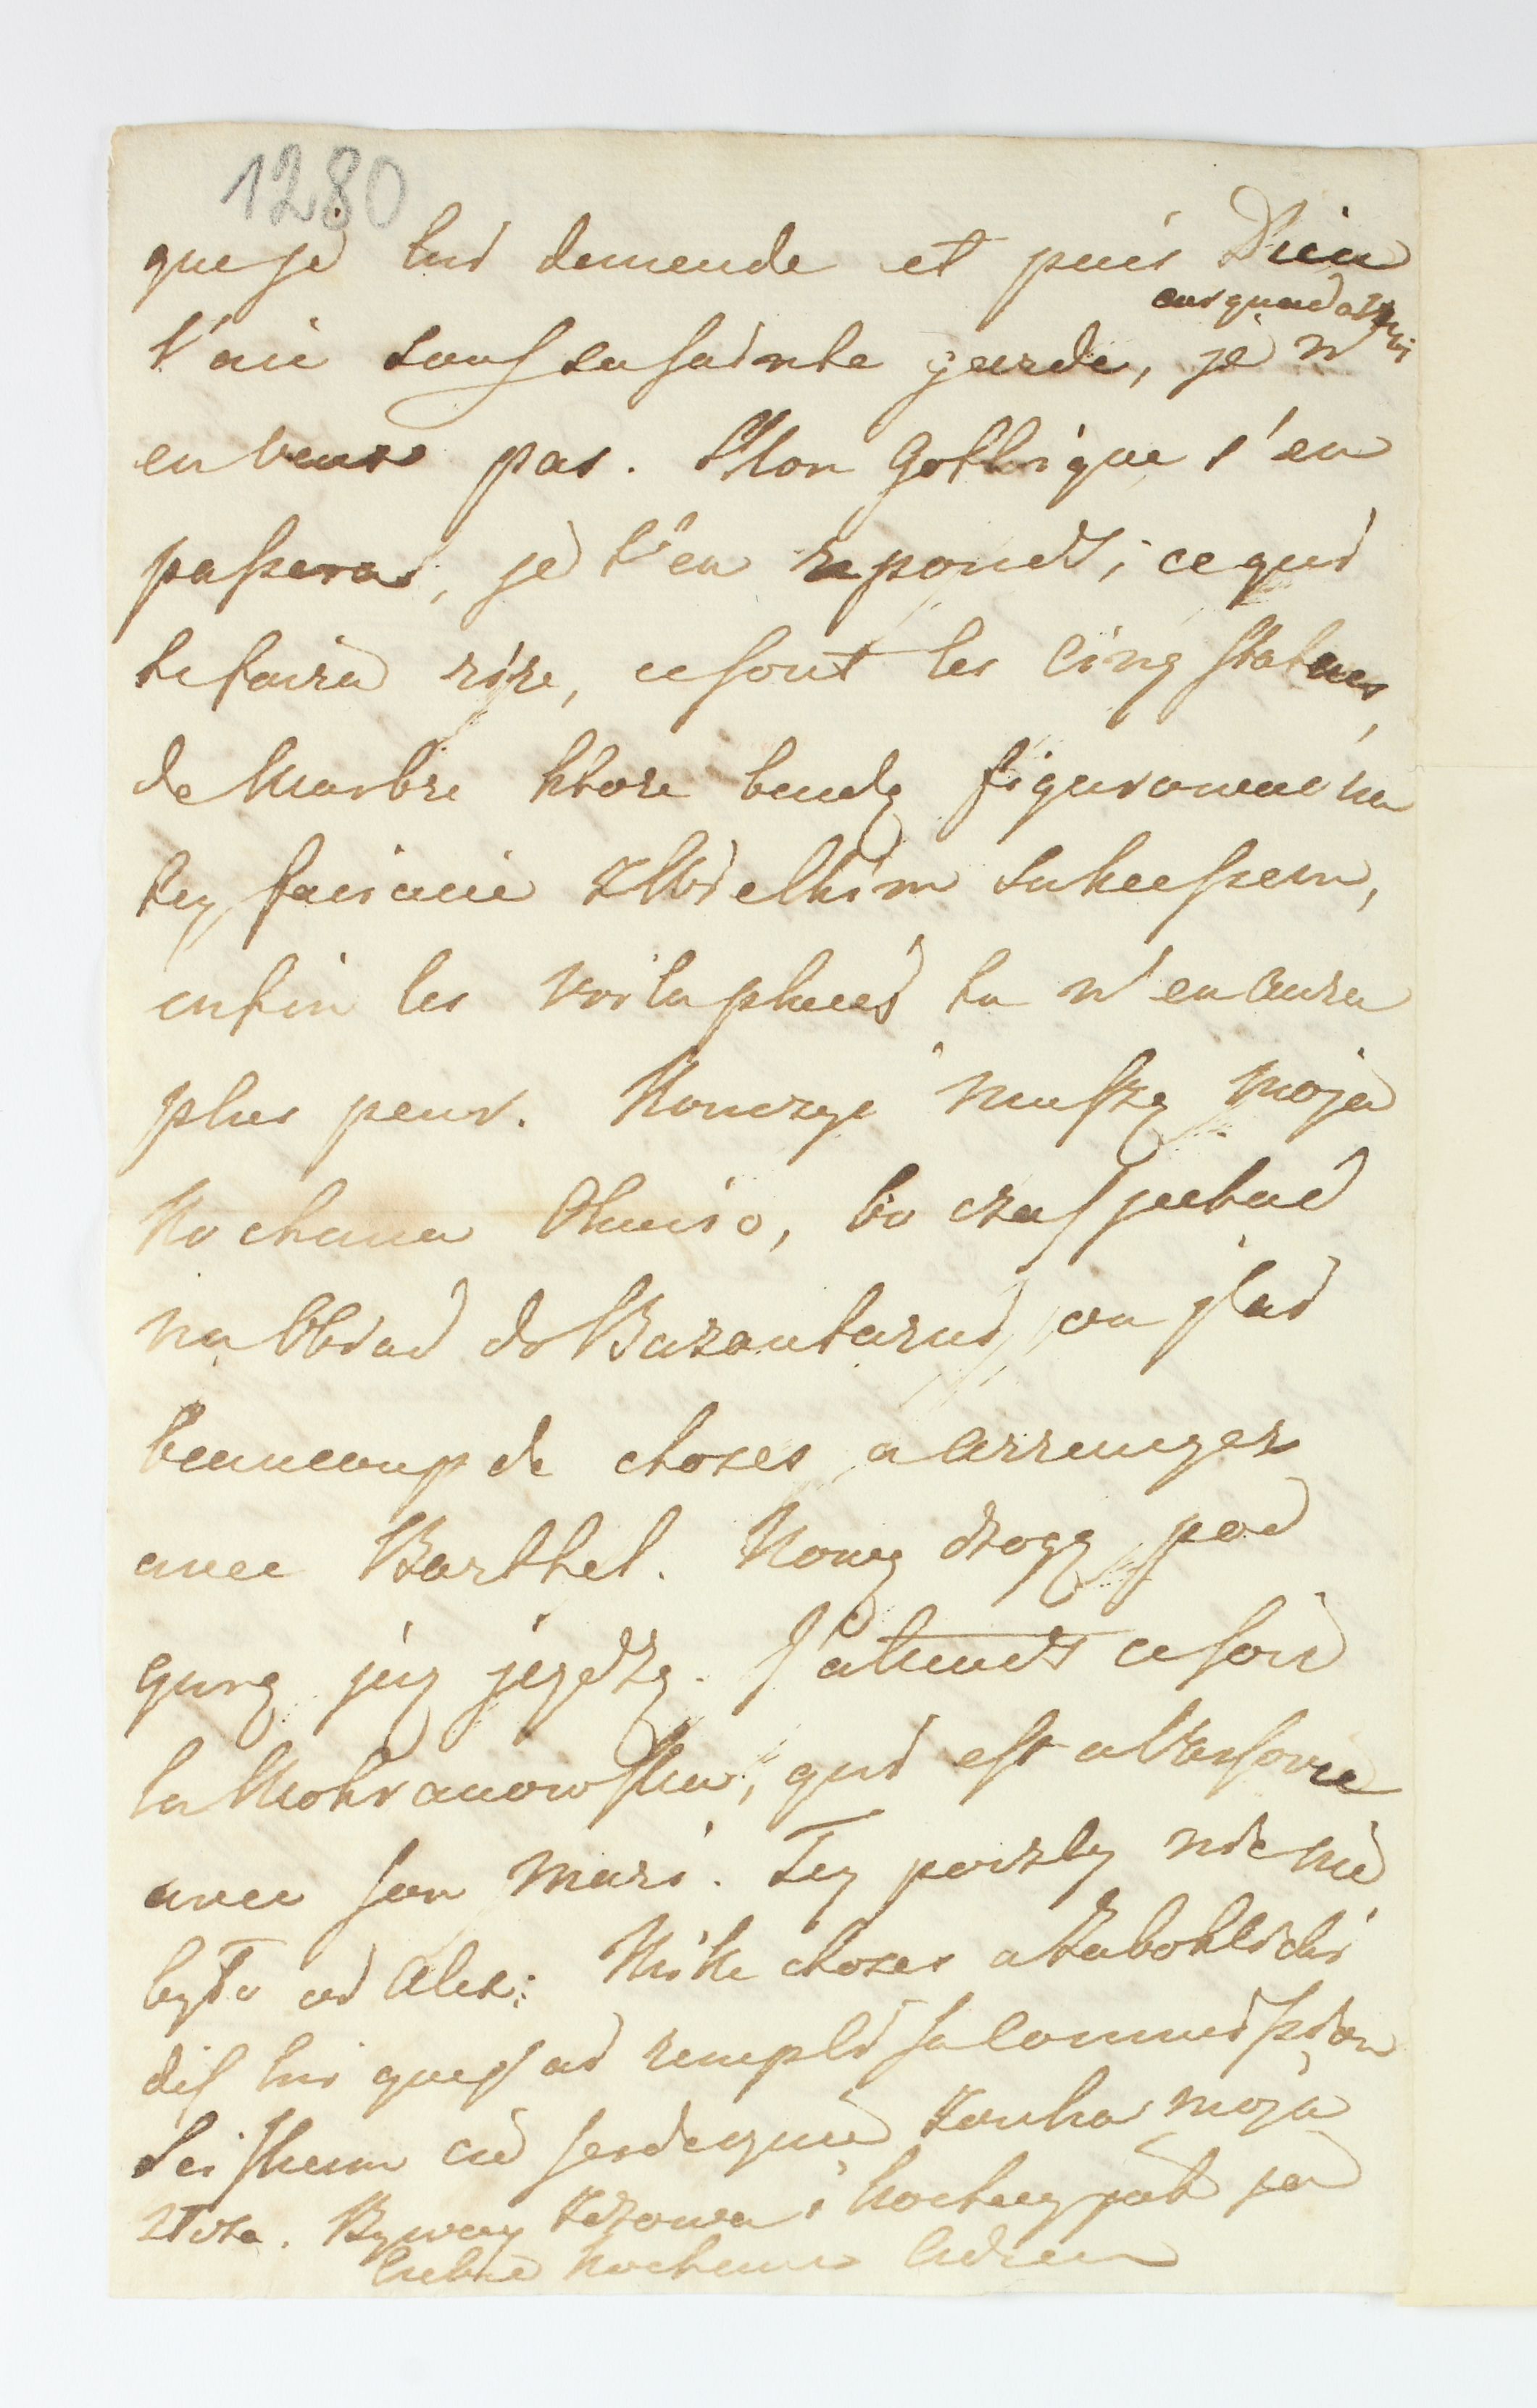 1280
que je lui demende et puis Dieu
car quand a lui
t'aie sous sa sainte garde, je n'
en veux pas. Mon Gothique s'en
passera, je t'en reponds, ce qui
te faira rire, ce sont les Cinq statues
de Marbre ktore bendą figurowac na
tey scianie z Wielkim sukcessem,
enfin les voila placeés tu n'en aura
plus peur. Konczyc muszę moja
Kochana Olesio, bo czas jechać
na Obiad do Bazantarni, ou j'ai
beaucoup de choses a arrenger
avec Barthel. Nową drogą pod
gurą juz jezdzą. J'attends ce soir
la Mokranowska, qui est a Varsovie
avec son Mari. Tey poczty nic nie
było od Alex: Mille choses a Zabokliki
dis lui que j'ai rempli sa Commission
Sciskam cie serdecznie Zonko moja
złota. Byway Zdrowa i kochay jak ja
ciebie kocham Adieu